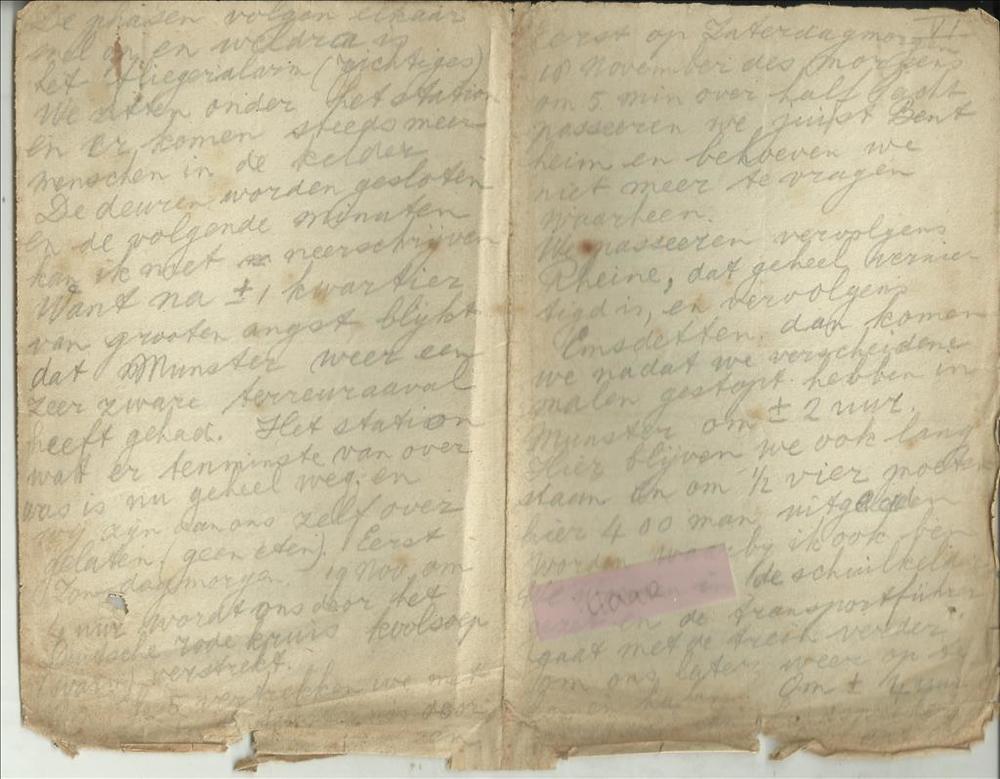 De phasen volgen elkaar
snel op en weldra is
het Fliegeralarm (richtiges)
We zitten onder het station
en er komen steeds meer
menschen in de kelder
De deuren worden gesloten
en de volgende minuten
kan ik niet neerschrijven
Want na ± 1 kwartier
van grooten angst blijkt
dat Munster weer een
zeer zware terreuraaval
heeft gehad. Het station
wat er tenminste van over
was is nu geheel weg. en
wij zijn aan ons zelf over
gelaten (geen eten). Eerst
Zondagmorgen 19 Nov. om
4 uur wordt ons door het
Duitsche rode kruis koolsoep
(warm) verstrekt.
5 vertrekken we met
door
en
VI
Eerst op Zaterdagmorgen
18 November des morgens
om 5 min over half acht
passeeren we juist Bent
heim en behoeven we
niet meer te vragen
waarheen.
We passeeren vervolgens
Rheine, dat geheel vernie-
tigd is, en vervolgens
Emsdetten, dan komen
we nadat we verscheidene
malen gestopt hebben in
Munster om ± 2 uur.
Hier blijven we ook lang
staan en om ½ vier moeten
hier 400 man uitgeladen
worden waarbij ik ook ben
We de schuilkelder
en de transportführer
gaat met de trein verder
om ons later weer op te
Om ± 4 uur